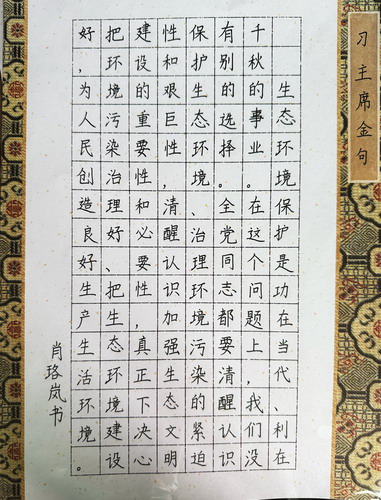 习主席金句
生态环境保护是功在当代、利在
千秋的事业。在这个问题上，我们没
有别的选择。全党同志都要清醒认识
保护生态环境、治理环境污染的紧迫
性和艰巨性，清醒认识加强生态文明
建设的重要性和必要性，真正下决心
把环境污染治理好、把生态环境建设
好，为人民创造良好生产生活环境。
肖珞岚书